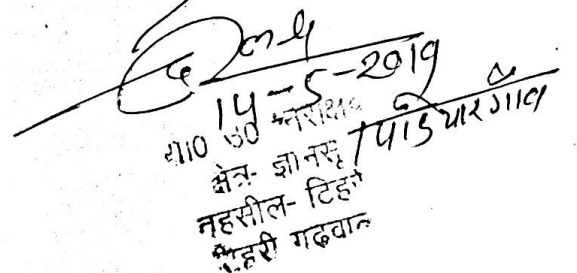 14-5-2019
रा0 उ0 निरीक्षक
क्षेत्र- ज्ञानसू / पांडियार गाँव
तहसील- टिहरी
टिहरी गढवाल